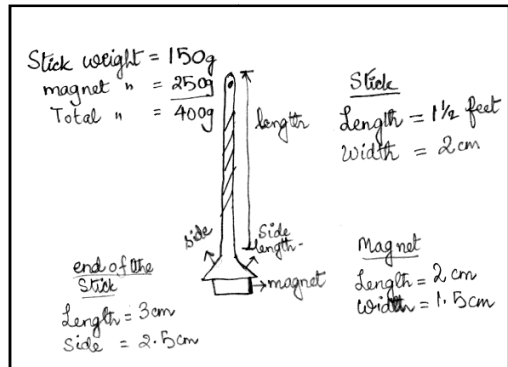 Stick weight = 150g
magnet " = 250g
Total " = 400g
length
Stick
Length = 1½ feet
width = 2cm
side
Side length-
magnet
end of the
Stick
Length = 3cm
Side = 2.5cm
Magnet
Length = 2 cm
Width = 1.5cm